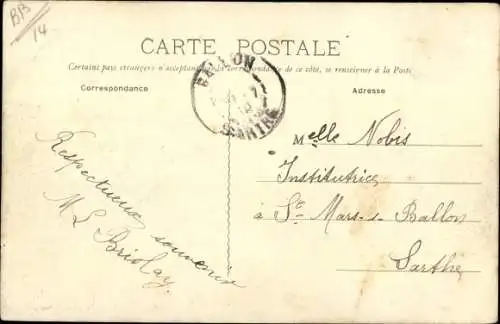 BB
14
CARTE POSTALE
Certains pays étrangers n'acceptant pas la correspondance de ce côté, se renseigner à la Poste
Correspondance
Adresse
BALLON
SARTHE
Respectueux souvenir
M L Briolay.
Melle Nobis
Institutrice
à St Mars-s-Ballon
Sarthe